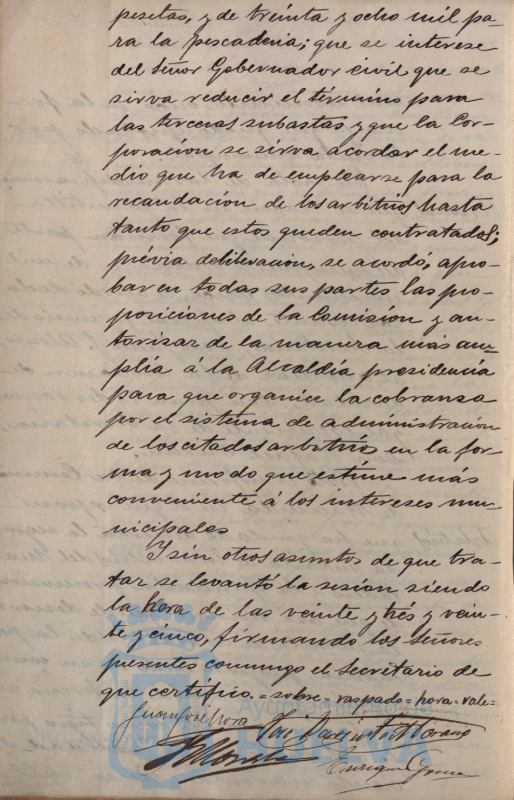 pesetas, y de treinta y ocho mil pa-
ra la pescaderia; que se interese
del Señor Gobernador civil que se
sirva reducir el término para
las terceras subastas y que la Cor-
poracion se sirva acordar el me-
dio que ha de emplearse para la
recaudación de los arbitrios hasta
tanto que estos queden contratados;
prévia deliberacion, se acordó, apro-
bar en todas sus partes las pro-
posiciones de la Comisión y au-
torisar de la manera más am-
plia á la Alcaldía presidencia
para que organice la cobransa
por el sistema de administración
de los citados arbitrios en la for-
ma y modo que estime más
conveniente á los intereses mu-
nicipales
Y sin otros asuntos de que tra-
tar se levantó la sesion siendo
la hora de las veinte y trés y vein-
te y cinco, firmando los Señores
presentes conmigo el Secretario de
que certifico.=sobre=raspado=hora=vale=
Juan José Mora José
Ayuntamiento de
HUELVA
Enrique